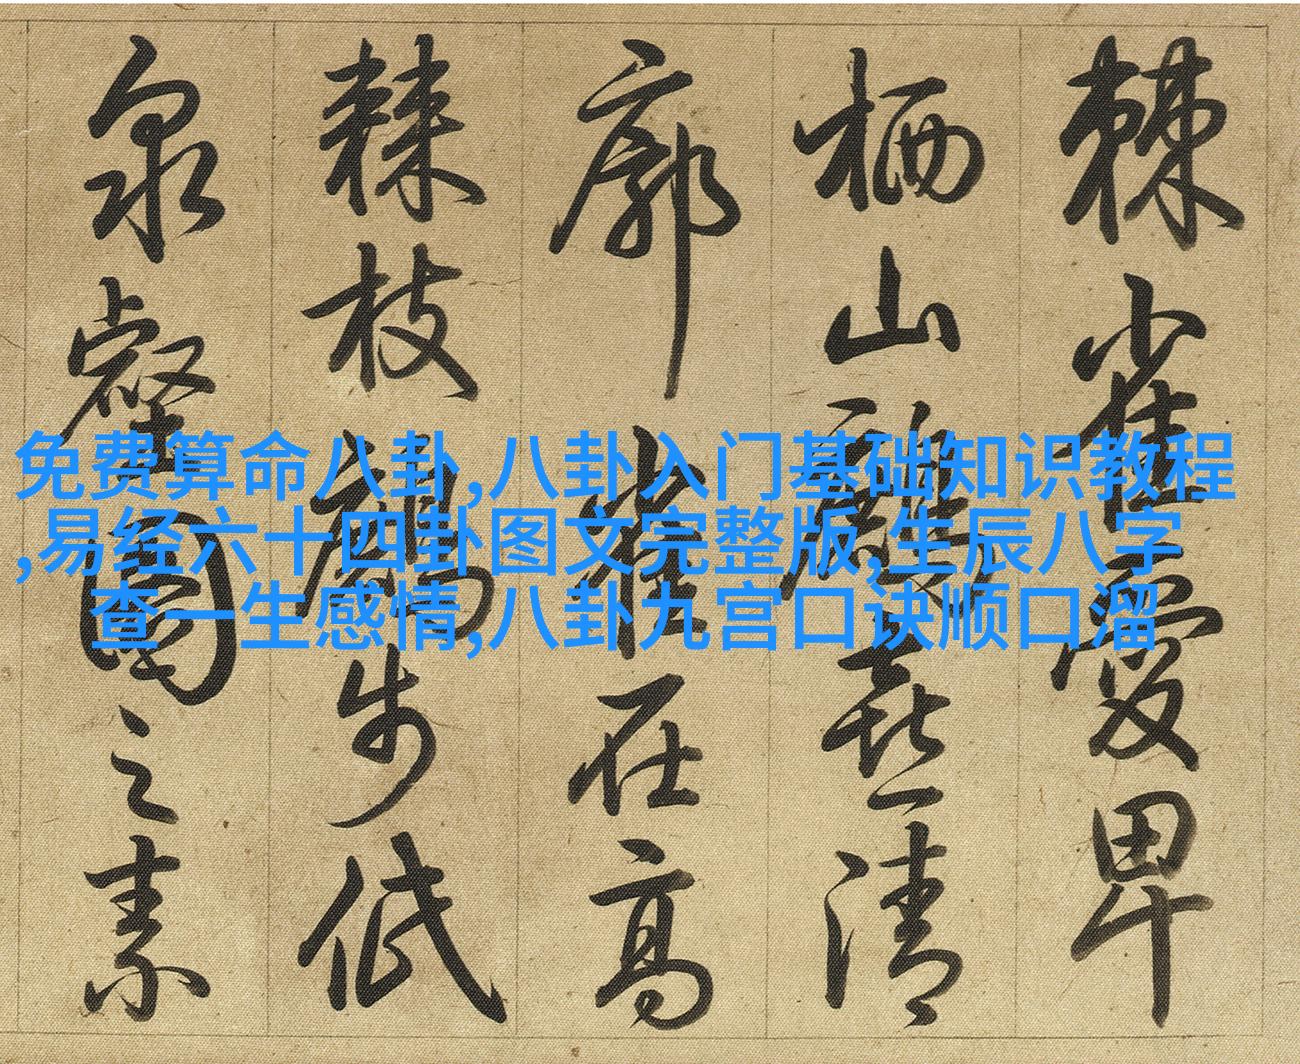 免费算命八卦,八卦入门基础知识教程
,易经六十四卦图文完整版,生辰八字
查一生感情,八卦九宫口诀顺口溜
棘雀愛卑
栖山喜清
廓雀在高
棘枝步低
泉壑之素